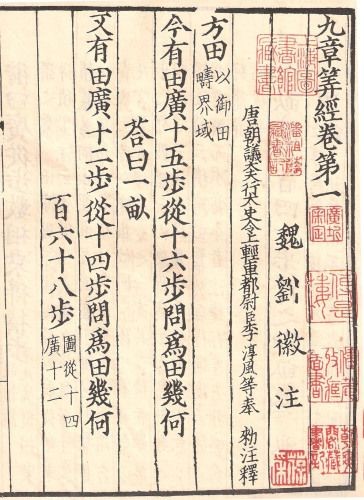 九章筭經卷第一
魏劉徽注
唐朝議大夫行太史令上輕車都尉臣李淳風等奉 勑注釋
方田以御田
疇界域
今有田廣十五步從十六步問爲田幾何
荅曰一畝
又有田廣十二步從十四步問爲田幾何
百六十八步圖從十四
廣十二